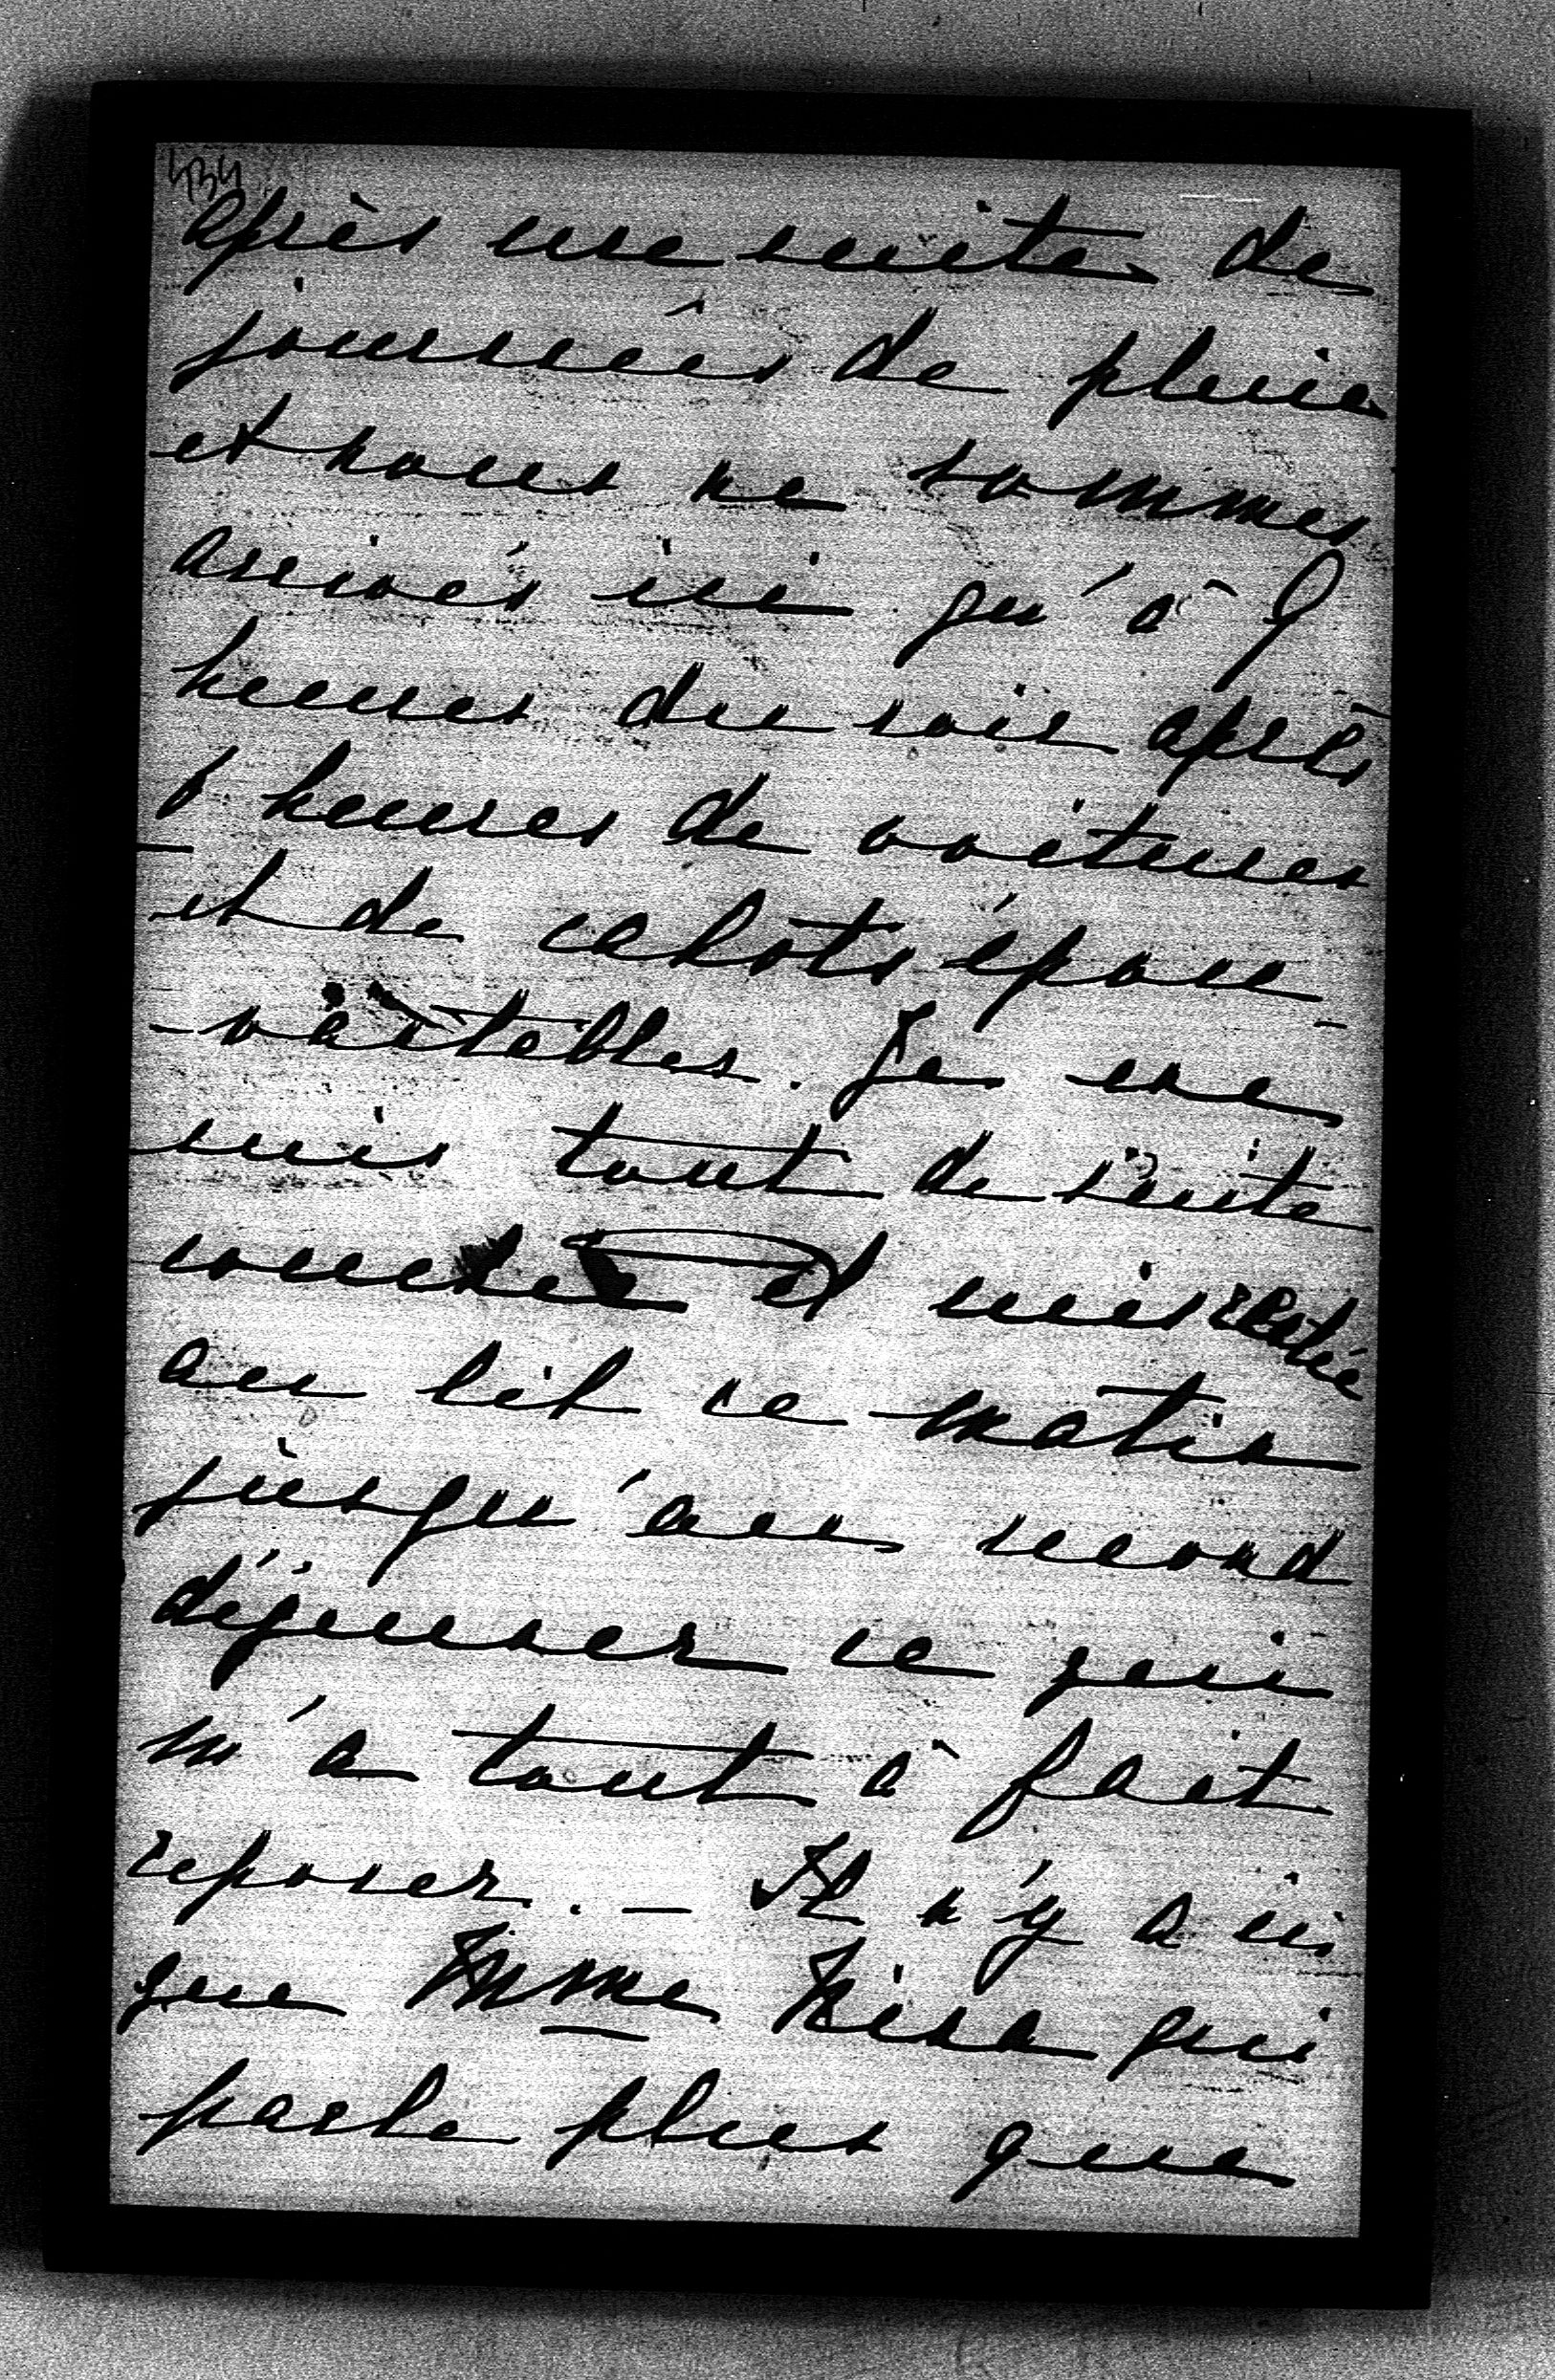 434
après une suite de
journées de pluie
et nous ne sommes
arrivés ici qu'à 9
heures du soir après
heures de voitures
et de cahots épou-
-vantables. Je me
suis tout de suite
couchée et suis restée
au lit ce matin
jusqu'au second
déjeuner ce qui
m'a tout à fait
reposer. — Il n'y a ici
que Mme Nina qui
parle plus que